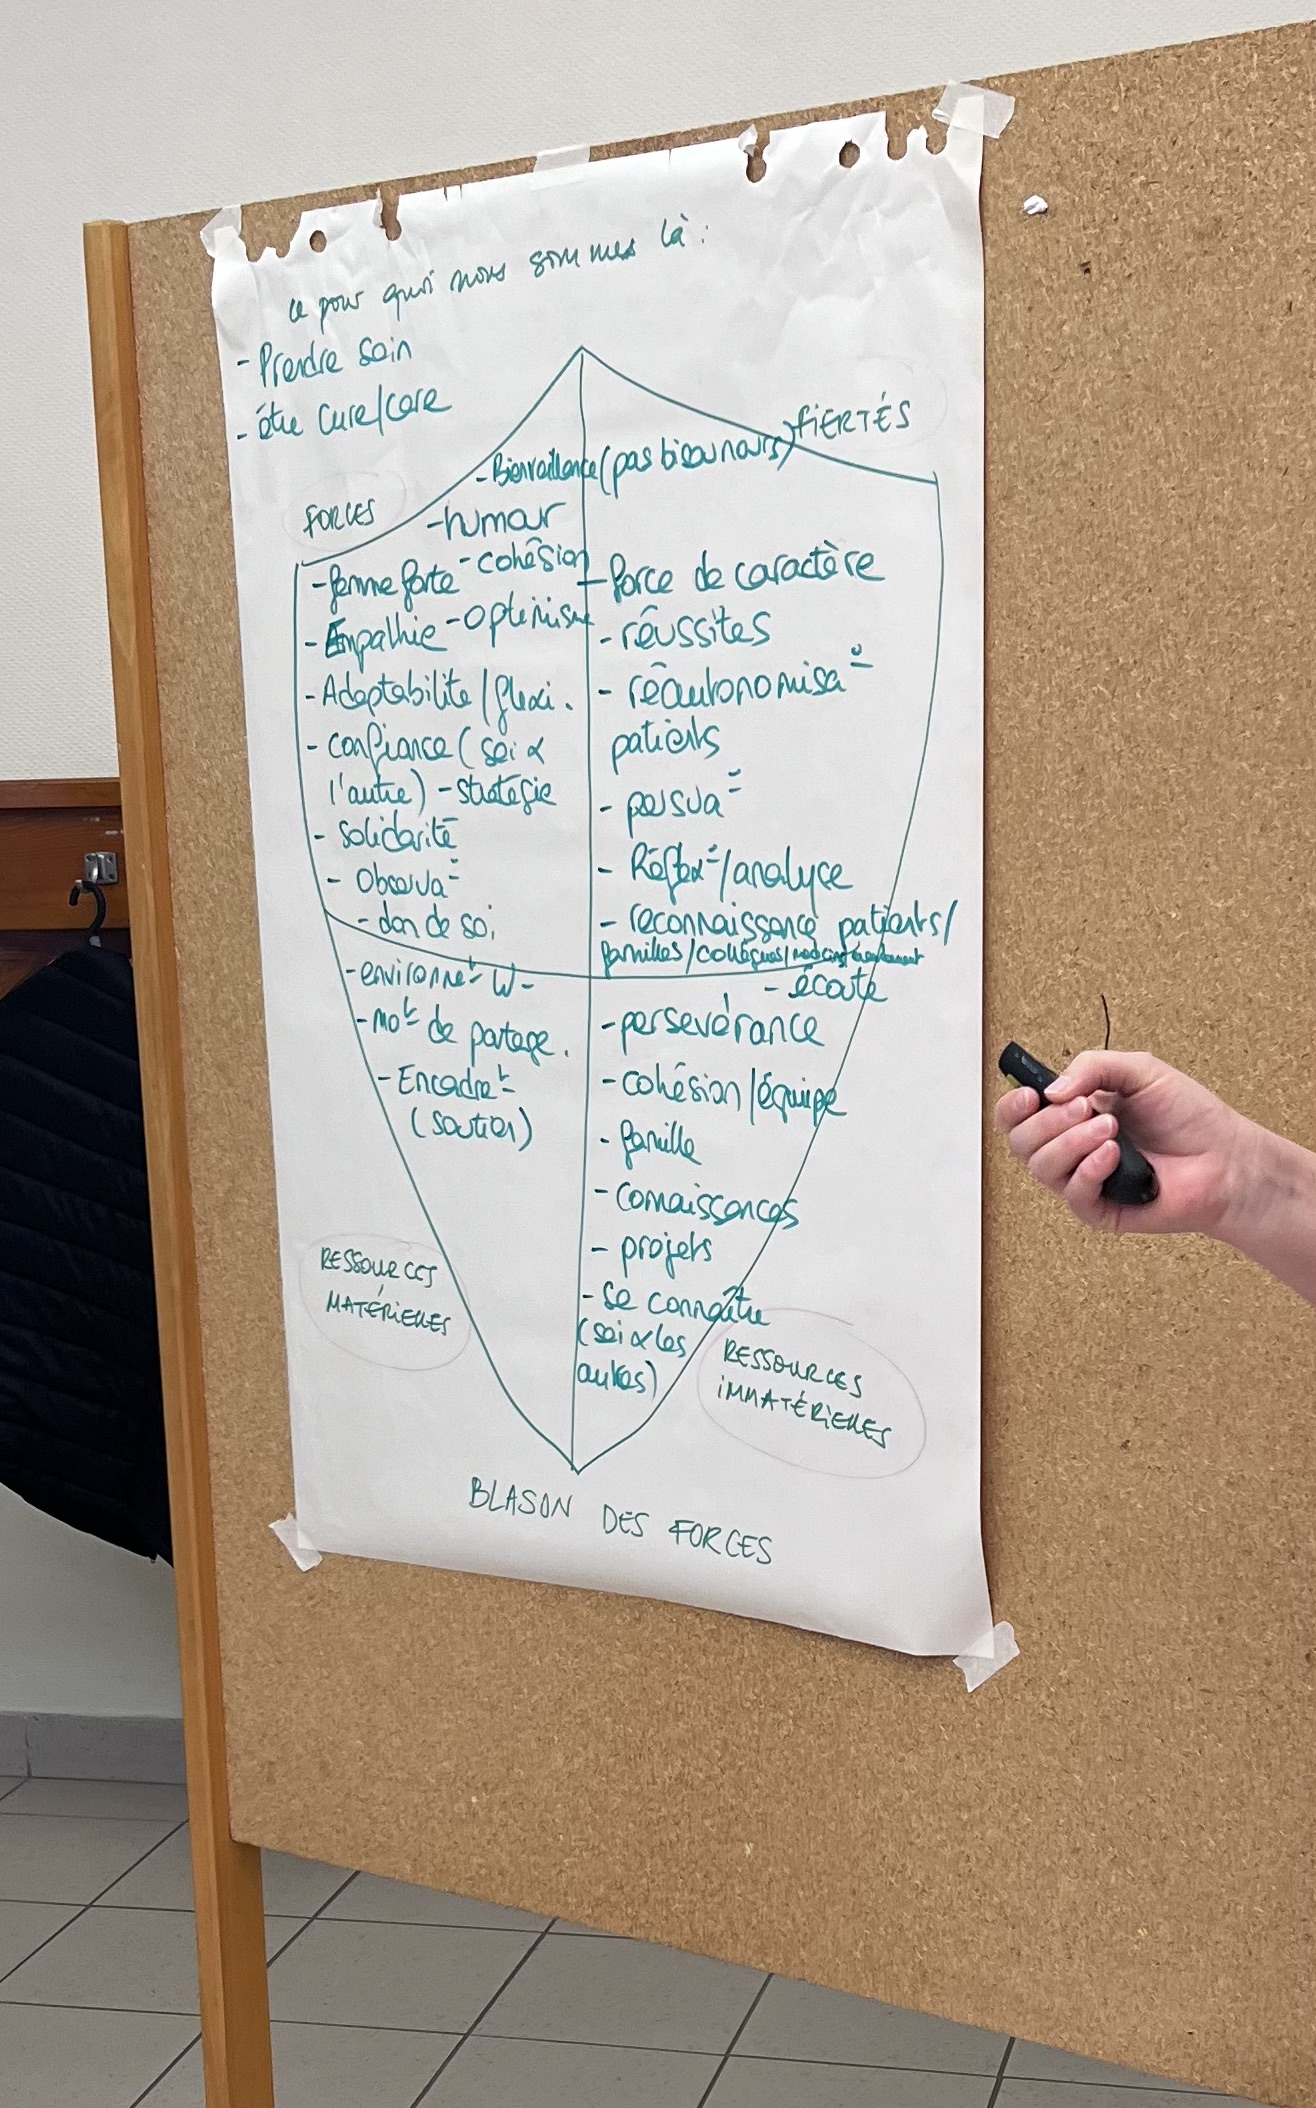 ce pour quoi nous sommes là :
- Prendre soin
- être Cure/Care
FIERTÉS
FORCES
- Bienveillance (pas bisounours)
- humour
- cohésion
- femme forte
- Optimisme
- Empathie
- Adaptabilité / flexi.
- confiance (soi &
l'autre) - stratégie
- solidarité
- Observa°
- don de soi
- force de caractère
- réussites
- réautonomisa°
patients
- persua°
- Réflex°/analyce
- reconnaissance patients/
familles/collègues/
- environnet W -
- mot de partage.
- Encadret
(soutien)
- écoute
- persevérance
- cohésion/équipe
- famille
- connaissances
- projets
- se connaître
(soi & les
autres)
RESSOURCES
MATÉRIELLES
RESSOURCES
IMMATÉRIELLES
BLASON DES FORCES